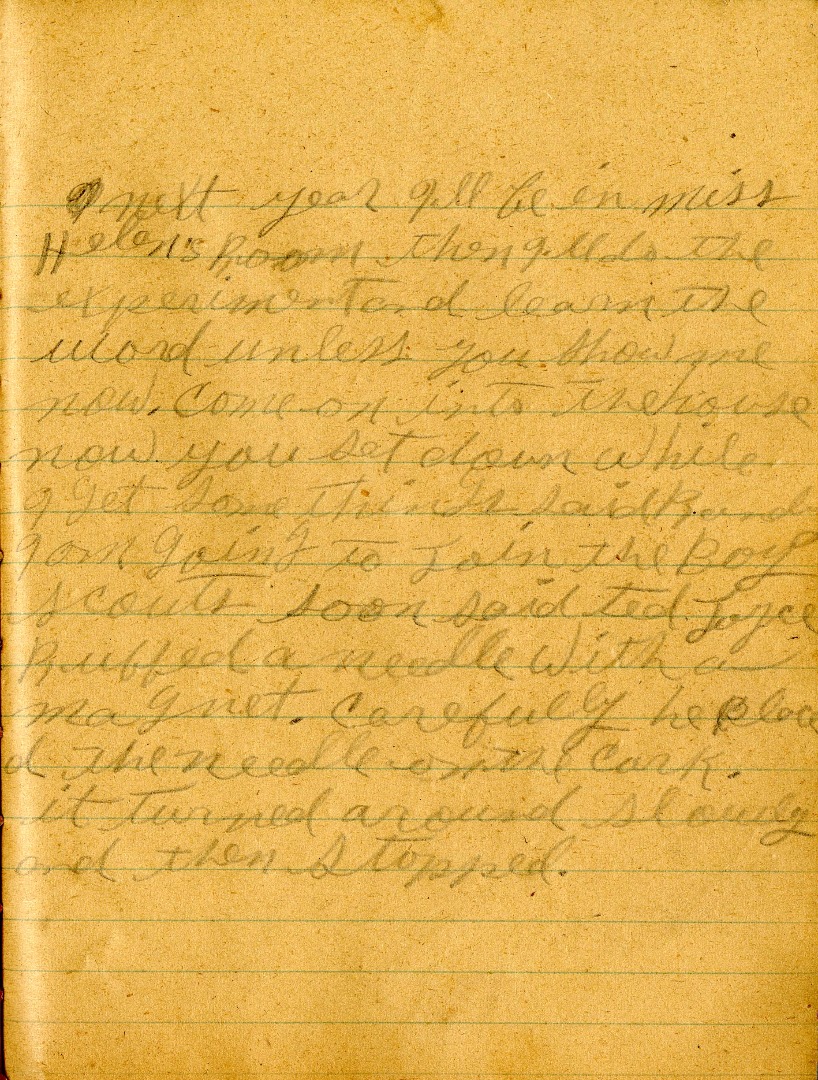 next year I'll be in miss
Helen's Room then I'll do the
experiment and learn the
word unless you show me
now. Come on into the house
now you set down while
I get some things said R and
I am going to Join the Boy
scouts soon said ted. Joyce
Ruffed a needle with a
magnet. Carefully he place
d the needle on the Cork.
it turned around slowly
and then stopped.